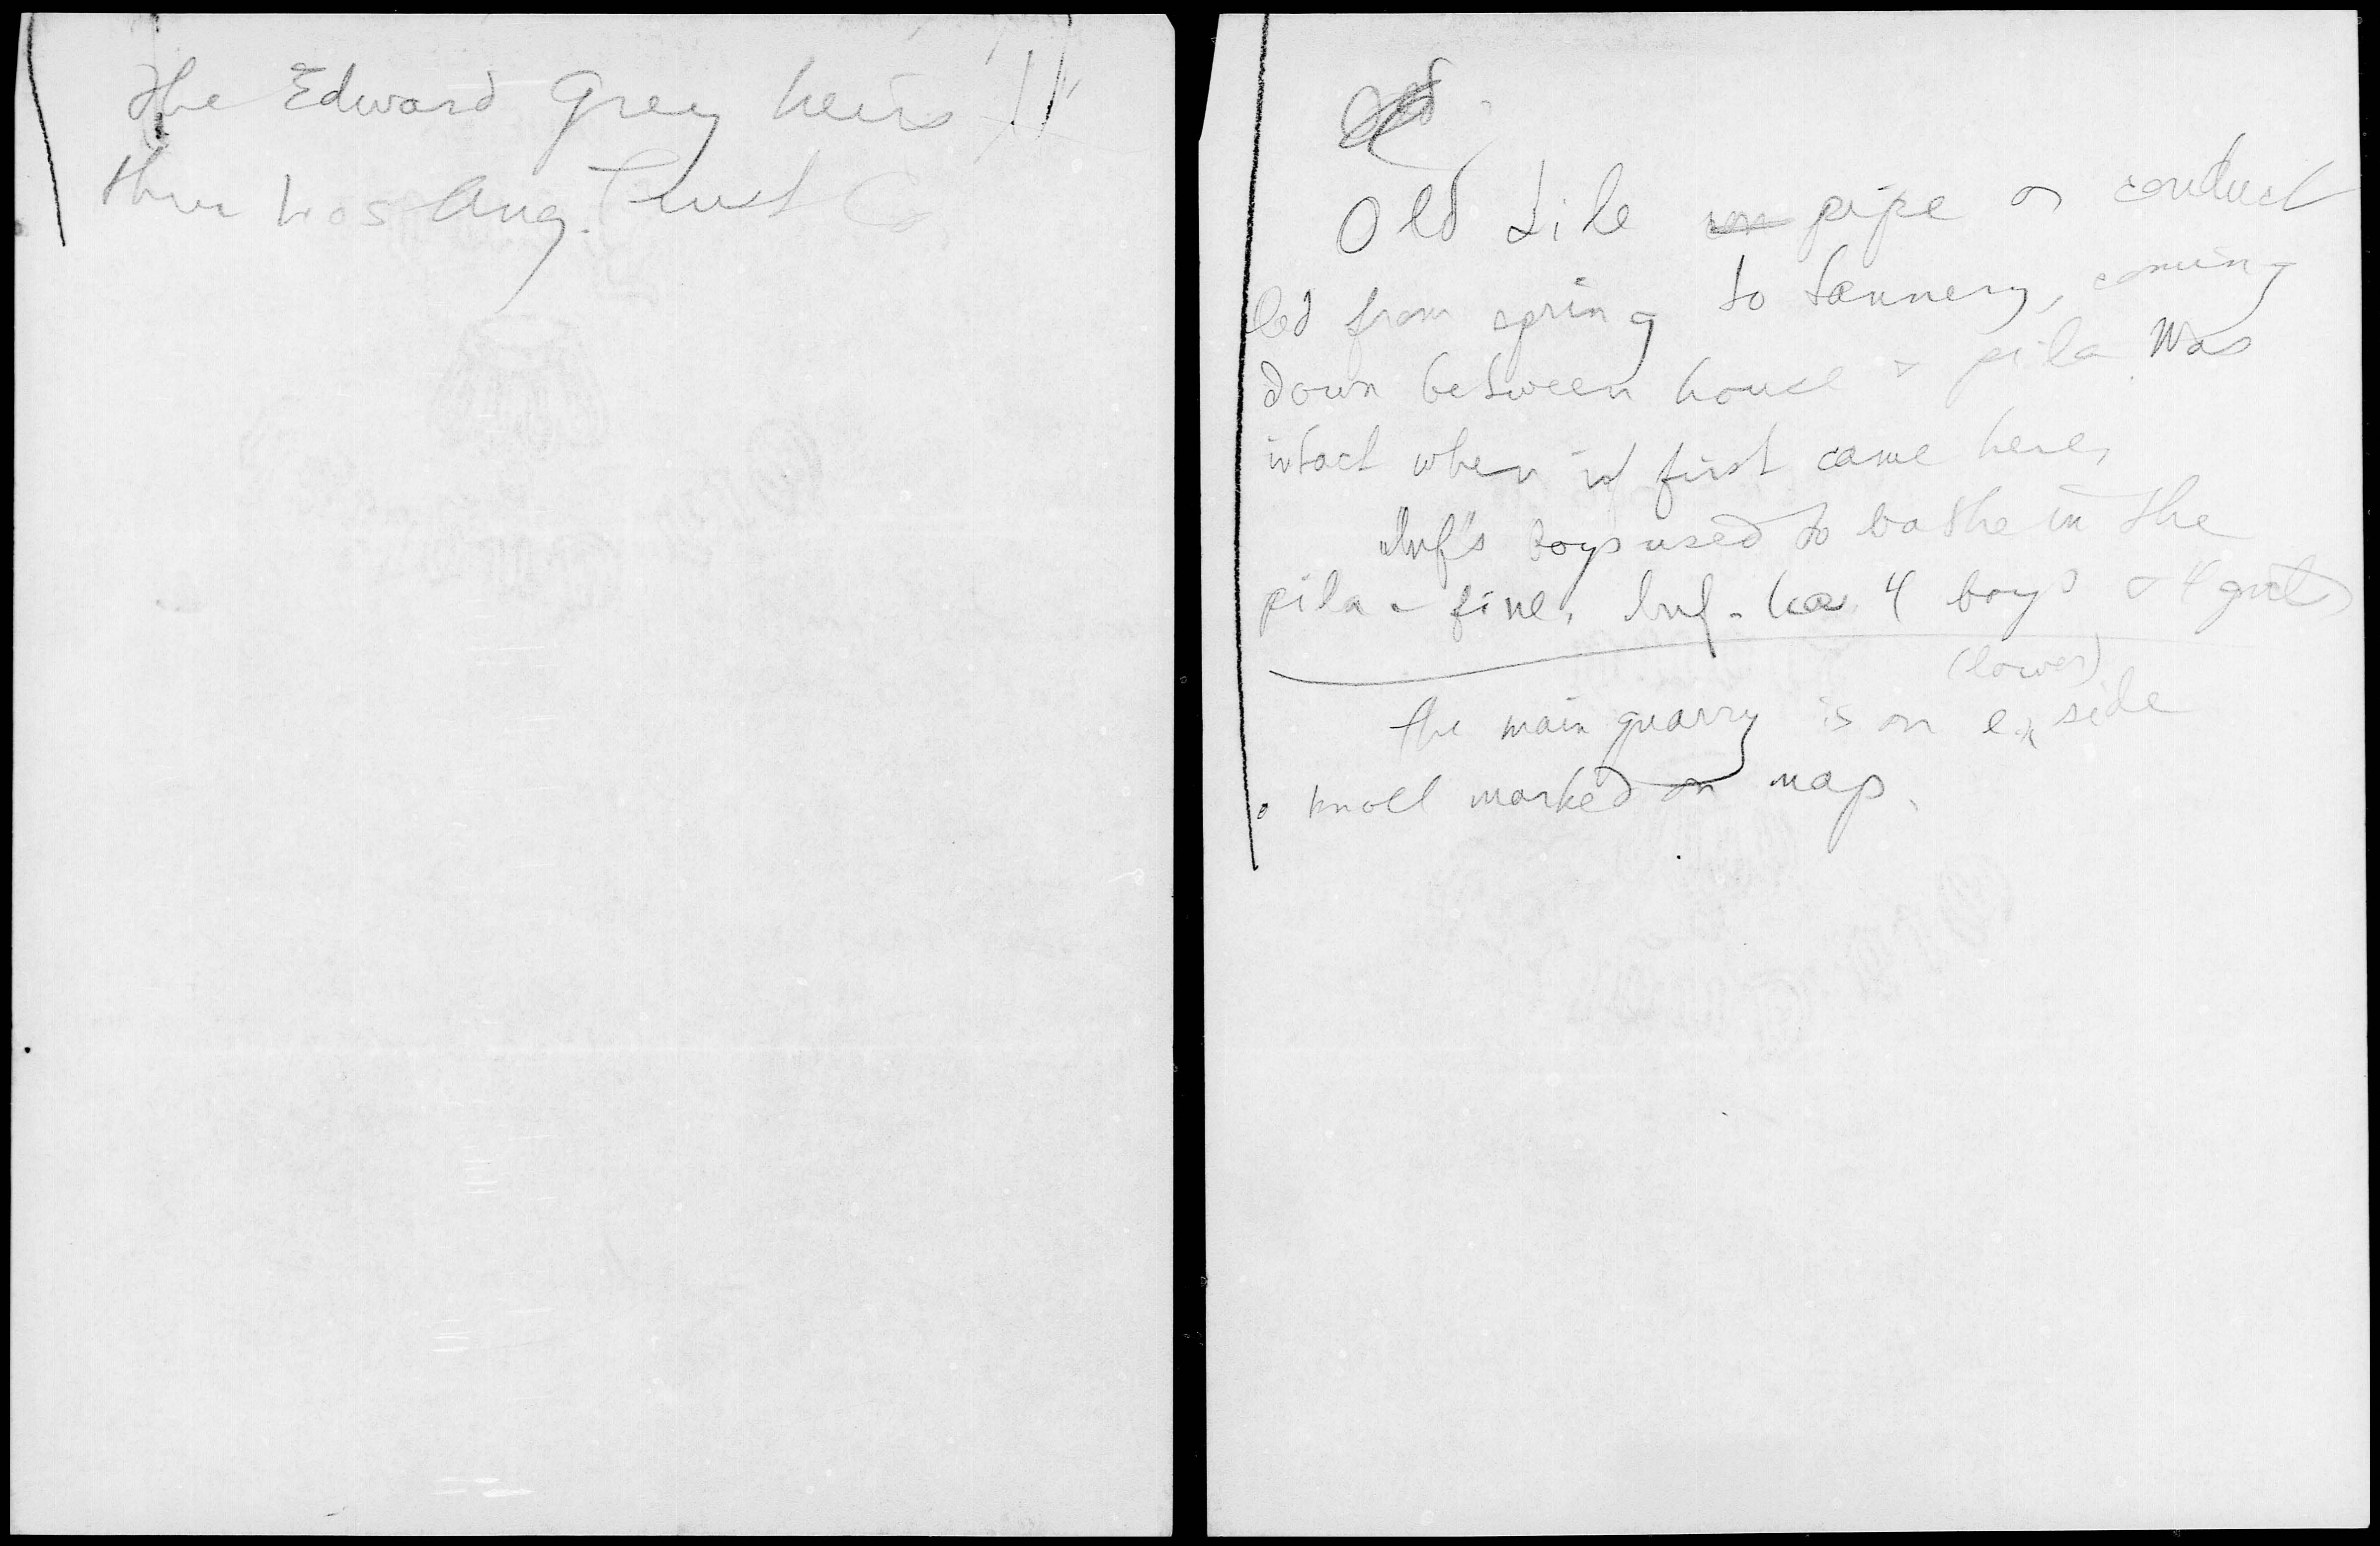 The Edward Grey heirs
thru Los Ang. Trust Co.
Old tile pipe or conduct
led from spring to tannery, coming
down between house & pila. Was
intact when inf first came here.
Inf's boys used to bathe in the
pila - fine. Inf. has 4 boys & 4 girls
(lower)
The main quarry is on e. side
knoll marked on map.